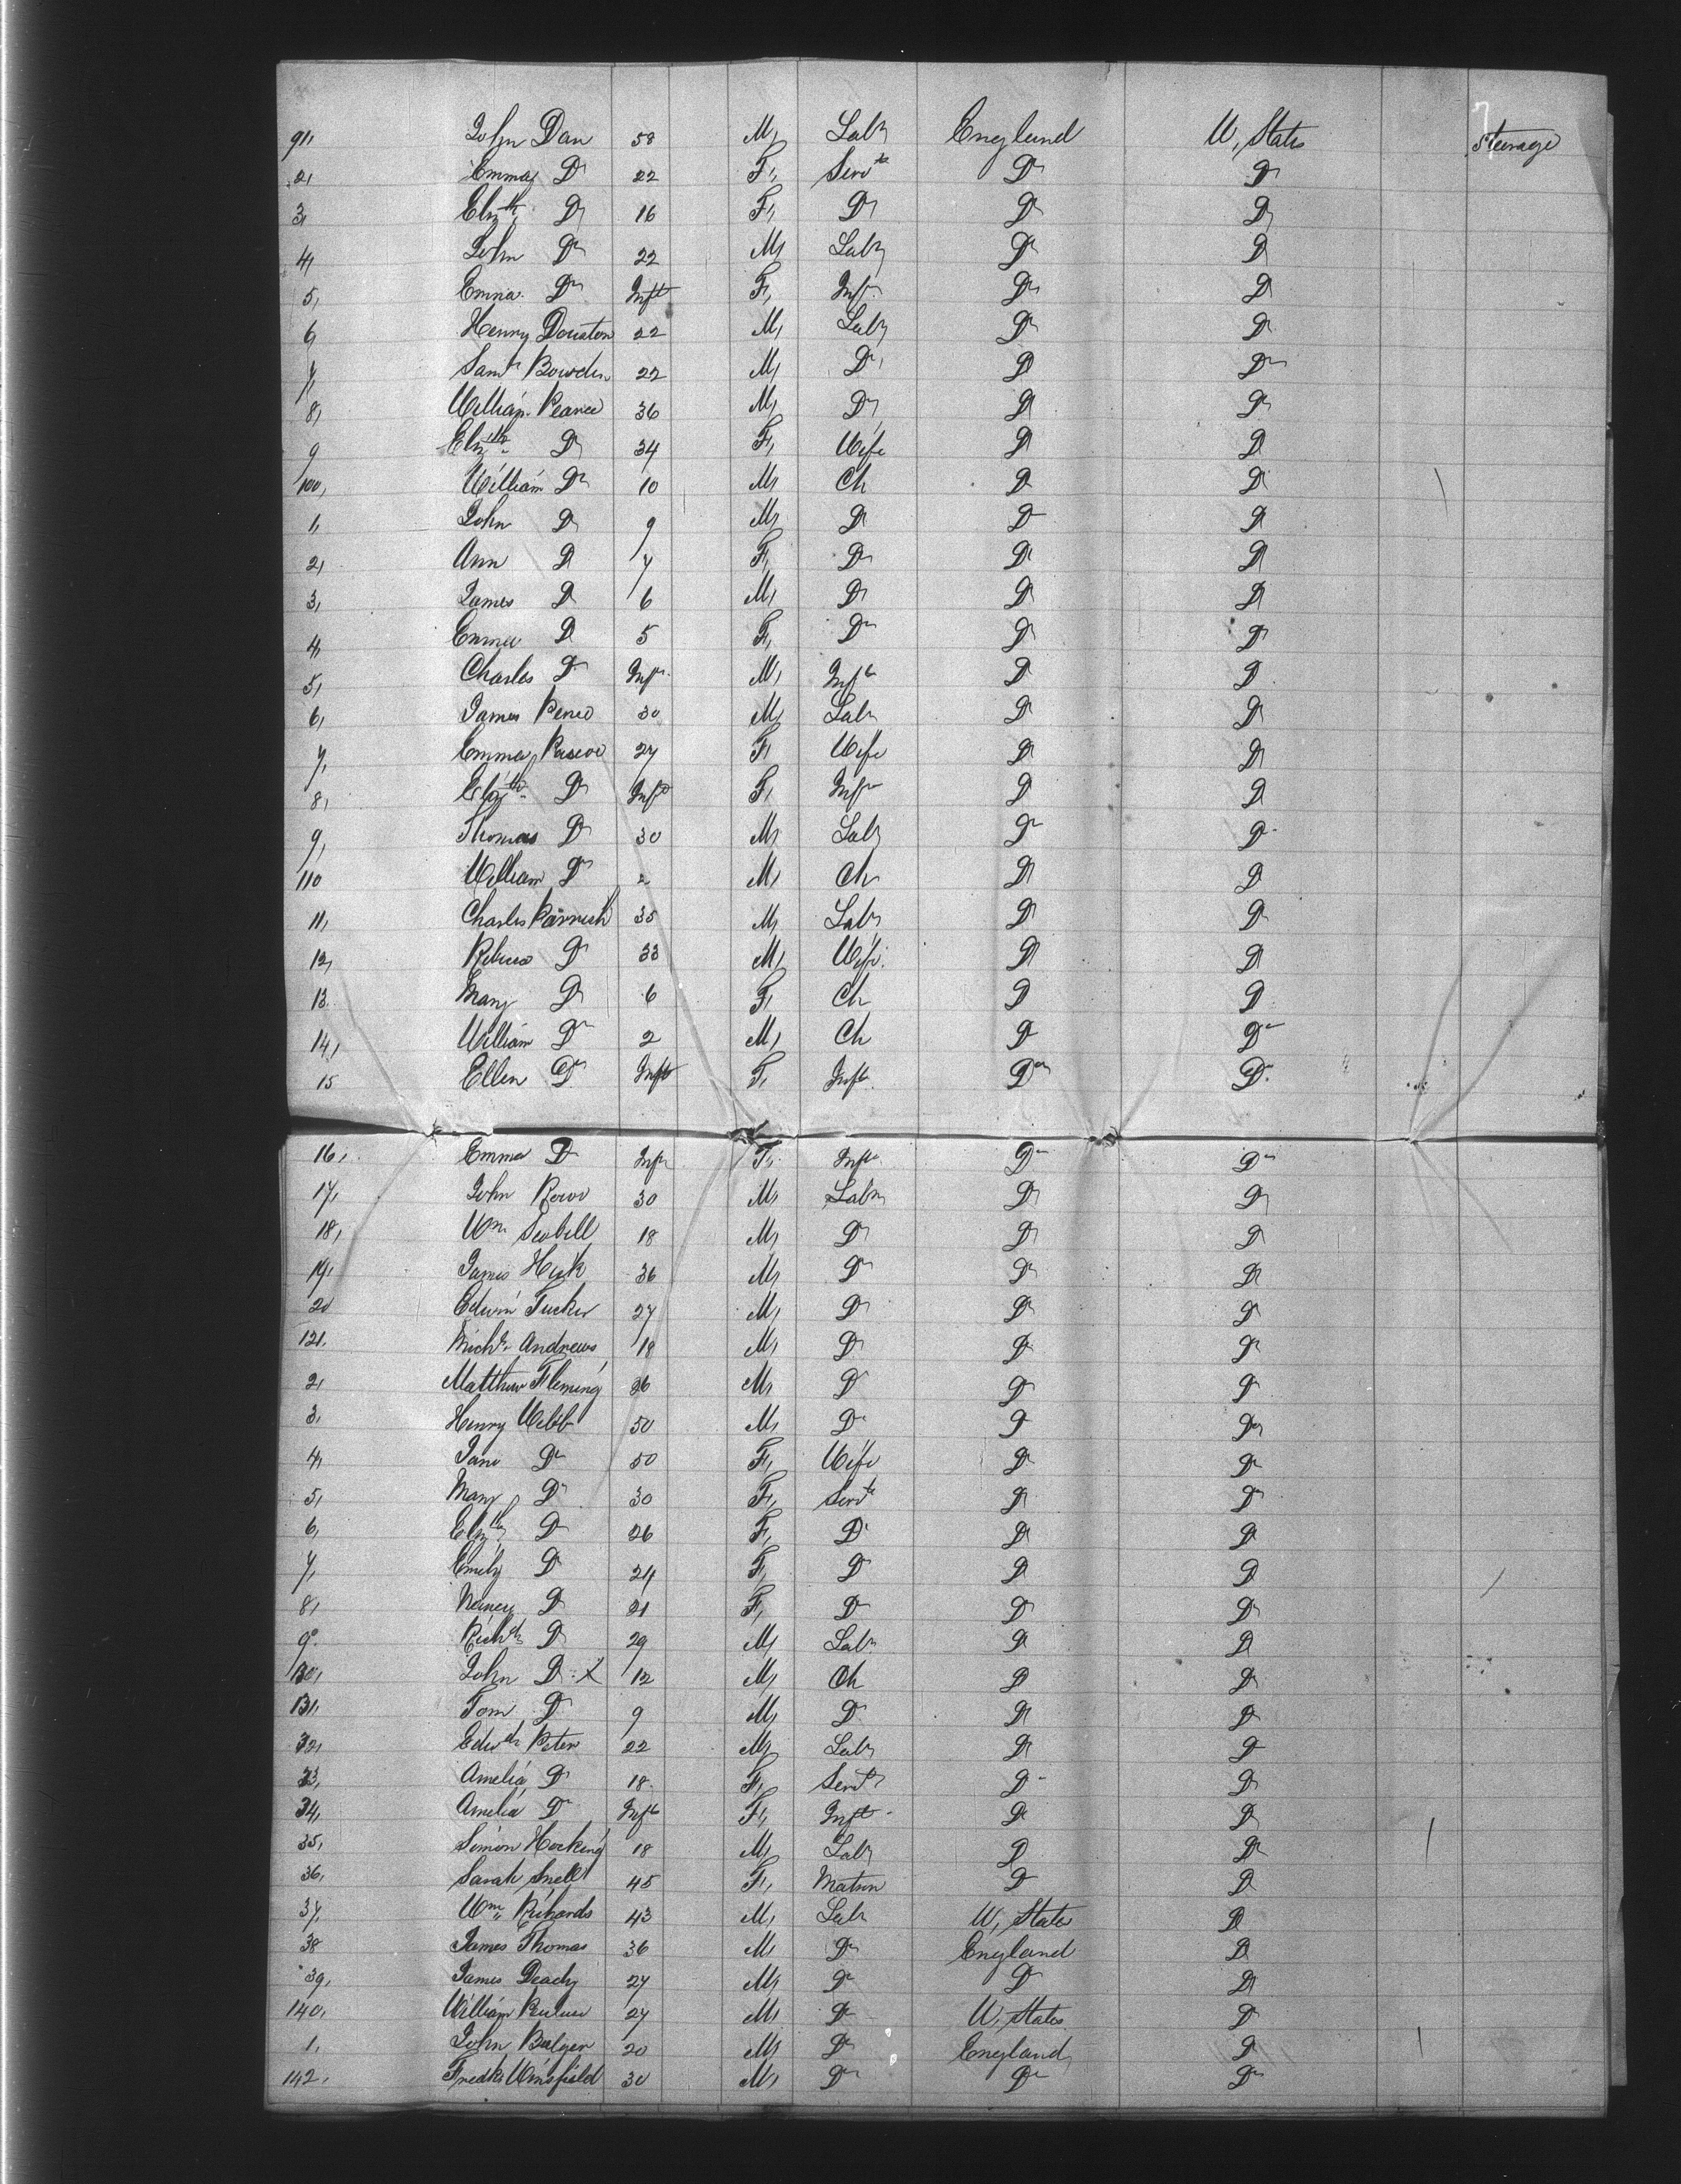 91, John Dan 58 M, Labr England U, States Steerage
2, Emma Do 22 F, Servt Do Do
3, Elizth Do 16 F, Do Do Do
4, John Do 22 M, Labr Do Do
5, Emma Do Inft F, Inft Do Do
6, Henry 22 M, Labr Do Do
7, Saml Bowden 22 M, Do Do Do
8, William Pearce 36 M, Do Do Do
9 Elizth Do 34 F, Wife Do Do
100, William Do 10 M, Ch Do Do
1, John Do 9 M, Do Do Do
2, Ann Do 7 F, Do Do Do
3, James Do 6 M, Do Do Do
4, Emma Do 5 F, Do Do Do
5, Charles Do Inft M, Inft Do Do
6, James 30 M, Labr Do Do
7, Emma Pascoe 27 F, Wife Do Do
8, Elizth Do Inft F, Inft Do Do
9, Thomas Do 30 M, Labr Do Do
110 William Do 2 M, Ch Do Do
11, Charles Parrish 35 M, Labr Do Do
12, Rebecca Do 33 M, Wife Do Do
13 Mary Do 6 F, Ch Do Do
14, William Do 2 M, Ch Do Do
15 Ellen Do Inft F, Inft Do Do
16, Emma Do Inft F, Inft Do Do
17, John Rowe 30 M, Labr Do Do
18, Wm 18 M, Do Do Do
19, James 36 M, Do Do Do
20 Edwin Tucker 27 M, Do Do Do
121. Michl Andrews 18 M, Do Do Do
2, Matthew Fleming 26 M, Do Do Do
3, Henry Webb 50 M, Do Do Do
4, Jane Do 50 F, Wife Do Do
5, Mary Do 30 F, Servt Do Do
6, Elizth Do 26 F, Do Do Do
7, Emily Do 24 F, Do Do Do
8, Nancy Do 21 F, Do Do Do
9. Richd Do 29 M, Labr Do Do
130, John Do X 12 M, Ch Do Do
131, Tom Do 9 M, Do Do Do
32, Edwd Peter 22 M, Labr Do Do
33, Amelia Do 18 F, Servt Do Do
34, Amelia Do Inft F, Inft Do Do
35, Simon Hocking 18 M, Labr Do Do
36, Sarah Snell 45 F, Matron Do Do
37, Wm Richards 43 M, Labr U, States Do
38 James Thomas 36 M, Do England Do
39, James Deady 27 M, Do Do Do
140, William 27 M, Do U, States Do
1, John Bulger 20 M, Do England Do
142, Fredk Winsfield 30 M, Do Do Do